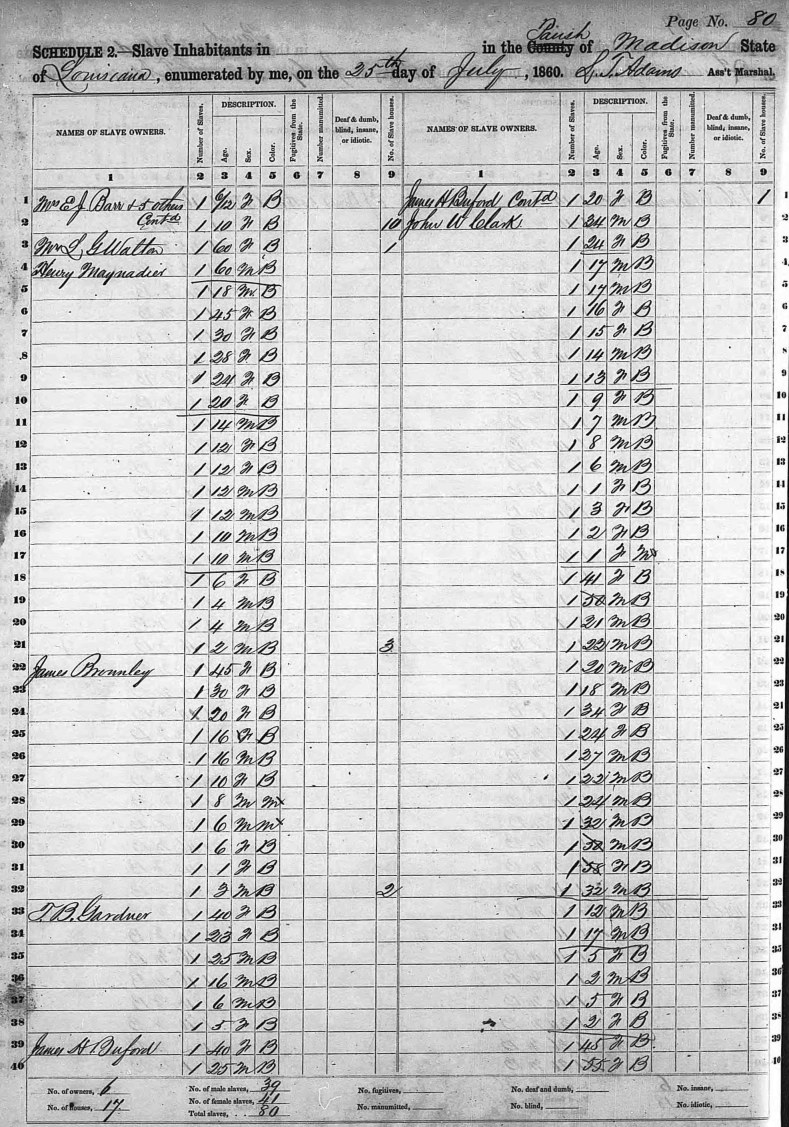 Page No. 80
SCHEDULE 2.—Slave Inhabitants in in the County Parish of Madison State
of Louisiana, enumerated by me, on the 25th day of July, 1860. L. T. Adams Ass't Marshal.
NAMES OF SLAVE OWNERS. Number of Slaves. DESCRIPTION. Age. Sex. Color. Fugitives from the State. Number manumitted. Deaf & dumb, blind, insane, or idiotic. No. of Slave houses. NAMES OF SLAVE OWNERS. Number of Slaves. DESCRIPTION. Age. Sex. Color. Fugitives from the State. Number manumitted. Deaf & dumb, blind, insane, or idiotic. No. of Slave houses.
1 2 3 4 5 6 7 8 9 1 2 3 4 5 6 7 8 9
1 Mrs E J Barr & 5 others 1 6/12 F B James H Buford Contd 1 20 F B 1 1
2 Contd 1 10 F B 10 John W Clark 1 34 M B 2
3 L G Walton 1 60 F B 1 1 24 F B 3
4 Henry Maynadier 1 60 M B 1 17 M B 4
5 1 18 M B 1 17 M B 5
6 1 45 F B 1 16 F B 6
7 1 30 F B 1 15 F B 7
8 1 28 F B 1 14 M B 8
9 1 24 F B 1 13 F B 9
10 1 20 F B 1 9 F B 10
11 1 14 M B 1 7 M B 11
12 1 12 F B 1 8 M B 12
13 1 12 F B 1 6 M B 13
14 1 12 M B 1 1 F B 14
15 1 12 M B 1 3 F B 15
16 1 10 M B 1 2 F B 16
17 1 10 M B 1 1 F M 17
18 1 6 F B 1 41 F B 18
19 1 4 M B 1 58 M B 19
20 1 4 M B 1 21 M B 20
21 1 2 M B 3 1 22 M B 21
22 James Brownley 1 45 F B 1 20 M B 22
23 1 30 F B 1 18 M B 23
24 1 20 F B 1 34 F B 21
25 1 16 F B 1 24 F B 25
26 1 16 M B 1 27 M B 26
27 1 10 F B 1 22 M B 27
28 1 8 M M 1 24 M B 28
29 1 6 M M 1 32 M B 29
30 1 6 F B 1 38 M B 30
31 1 1 F B 1 58 F B 31
32 1 3 M B 2 1 32 M B 32
33 T. B. Gardner 1 40 F B 1 12 M B 33
34 1 23 F B 1 17 M B 34
35 1 25 M B 1 5 F B 35
36 1 16 M B 1 2 M B 36
37 1 6 M B 1 5 F B 37
38 1 5 F B 1 2 F B 38
39 James H Buford 1 40 F B 1 45 F B 39
40 1 25 M B 1 55 F B 40
No. of owners, 6 No. of male slaves, 39 No. fugitives, No. of deaf and dumb, No. insane,
No. of houses, 17 No. of female slaves, 41 No. manumitted, No. blind, No. idiotic,
Total slaves, 80